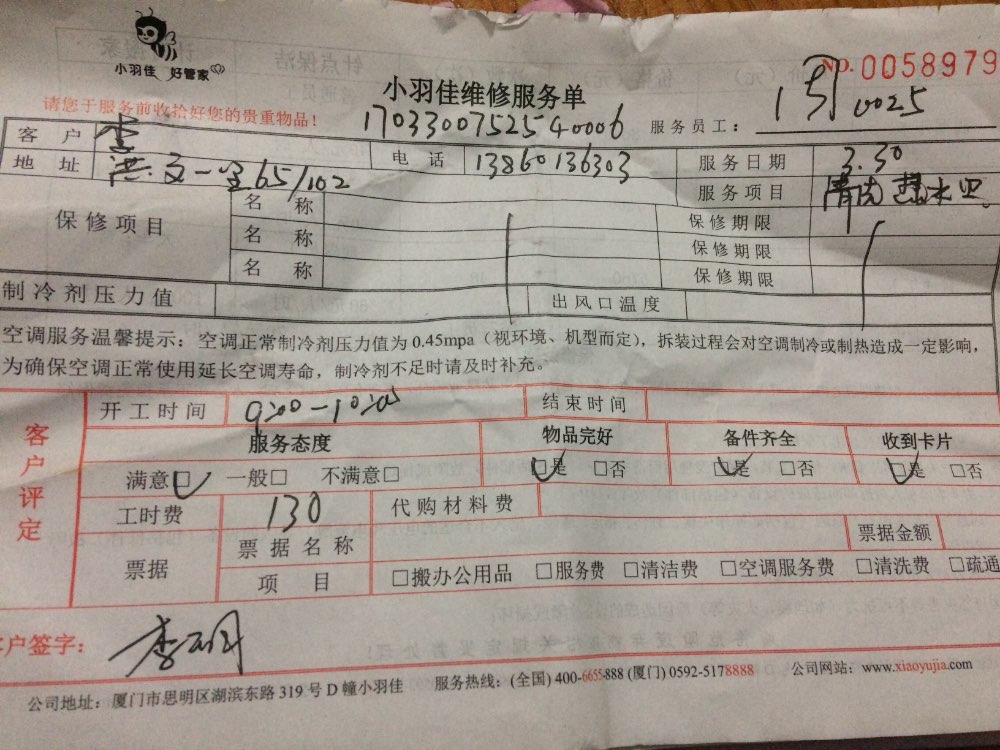 小羽佳 好管家
NO. 0058979
小羽佳维修服务单
请您于服务前收拾好您的贵重物品！
17033007525540006
服务员工： 0025
客户 李 电话 13860136303 服务日期 3.30
地址 洪文一里65/102 服务项目 清洗热水
保修项目 名称 保修期限
名称 保修期限
名称 保修期限
制冷剂压力值 出风口温度
空调服务温馨提示：空调正常制冷剂压力值为 0.45mpa（视环境、机型而定），拆装过程会对空调制冷或制热造成一定影响，
为确保空调正常使用延长空调寿命，制冷剂不足时请及时补充。
客户评定
开工时间 9:00-10:05 结束时间
服务态度 物品完好 备件齐全 收到卡片
满意□ 一般□ 不满意□ □是 □否 □是 □否 □是 □否
工时费 130 代购材料费
票据 票据名称 票据金额
项目 □搬办公用品 □服务费 □清洁费 □空调服务费 □清洗费 □疏通
客户签字：
公司地址：厦门市思明区湖滨东路 319 号 D 幢小羽佳 服务热线：(全国) 400-6655-888 (厦门) 0592-5178888 公司网站：www.xiaoyujia.com